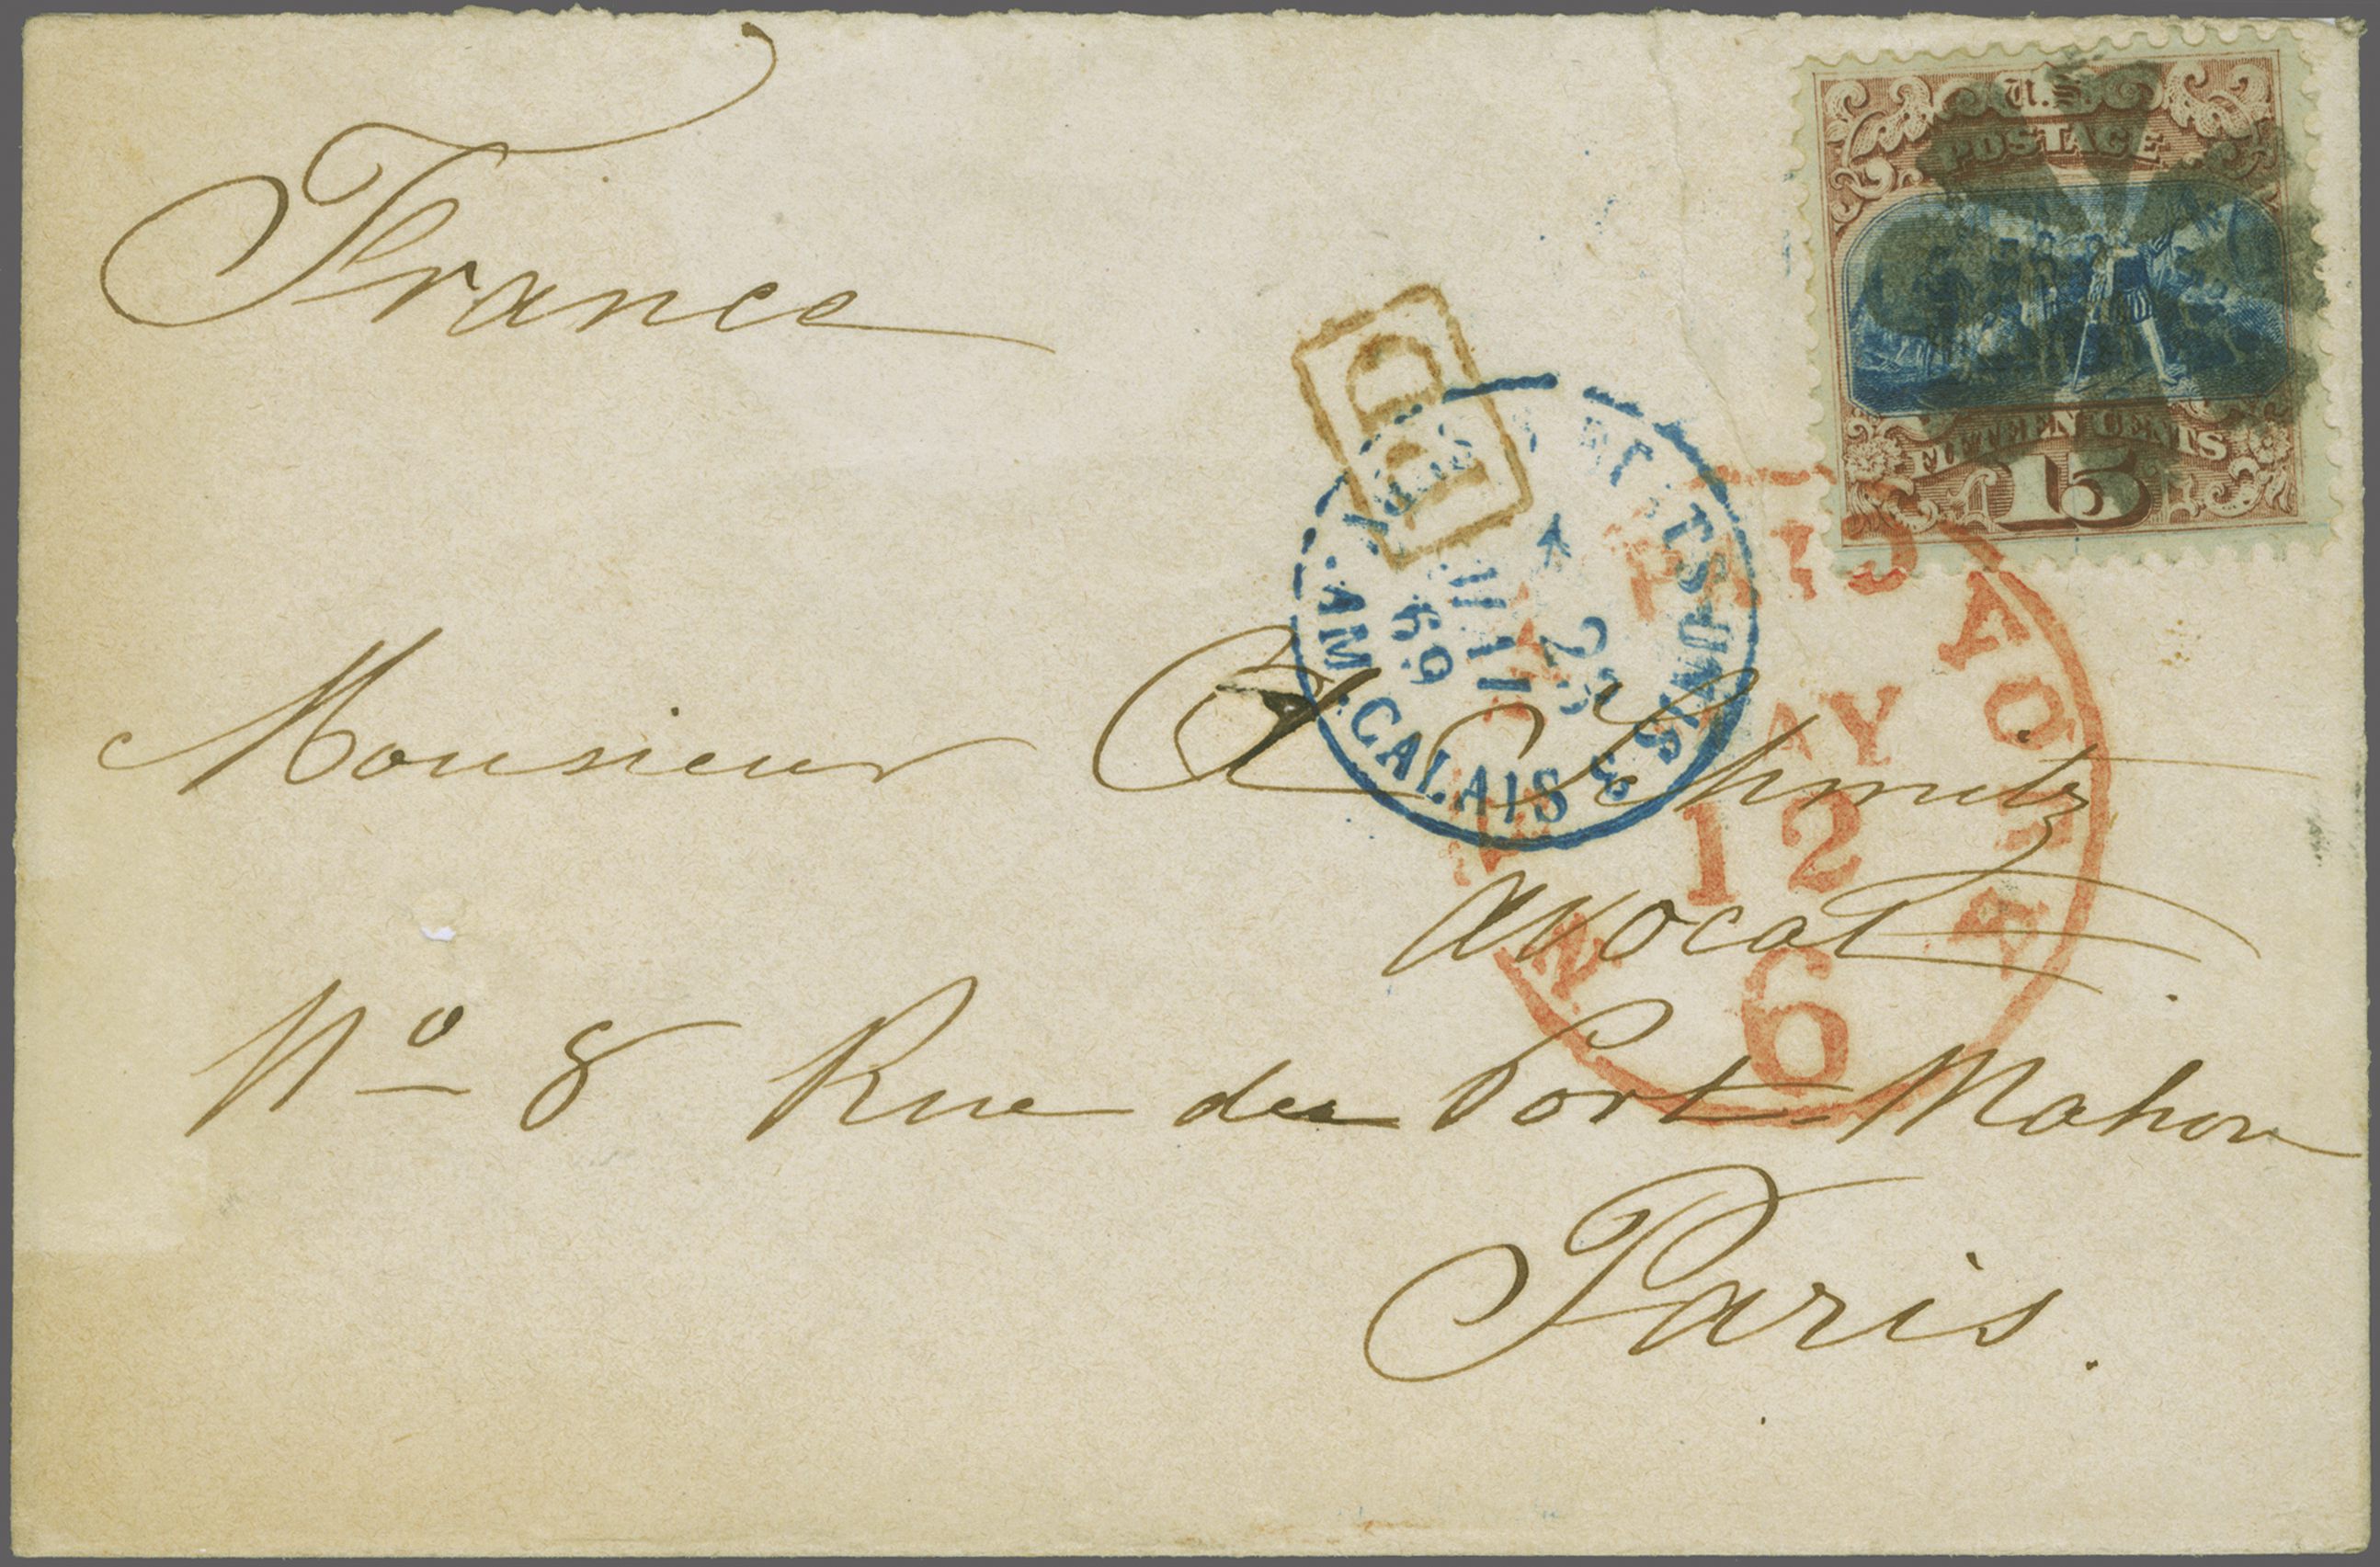 France
U.S.
POSTAGE
FIFTEEN CENTS
15
PD
ETATS-UNIS
SERV. AM. CALAIS
A
23
MAI
69
NEW YORK
PAID
MAY
12
6
Monsieur A Schmitz
avocat
Nº 8 Rue du Port-Mahon
Paris.